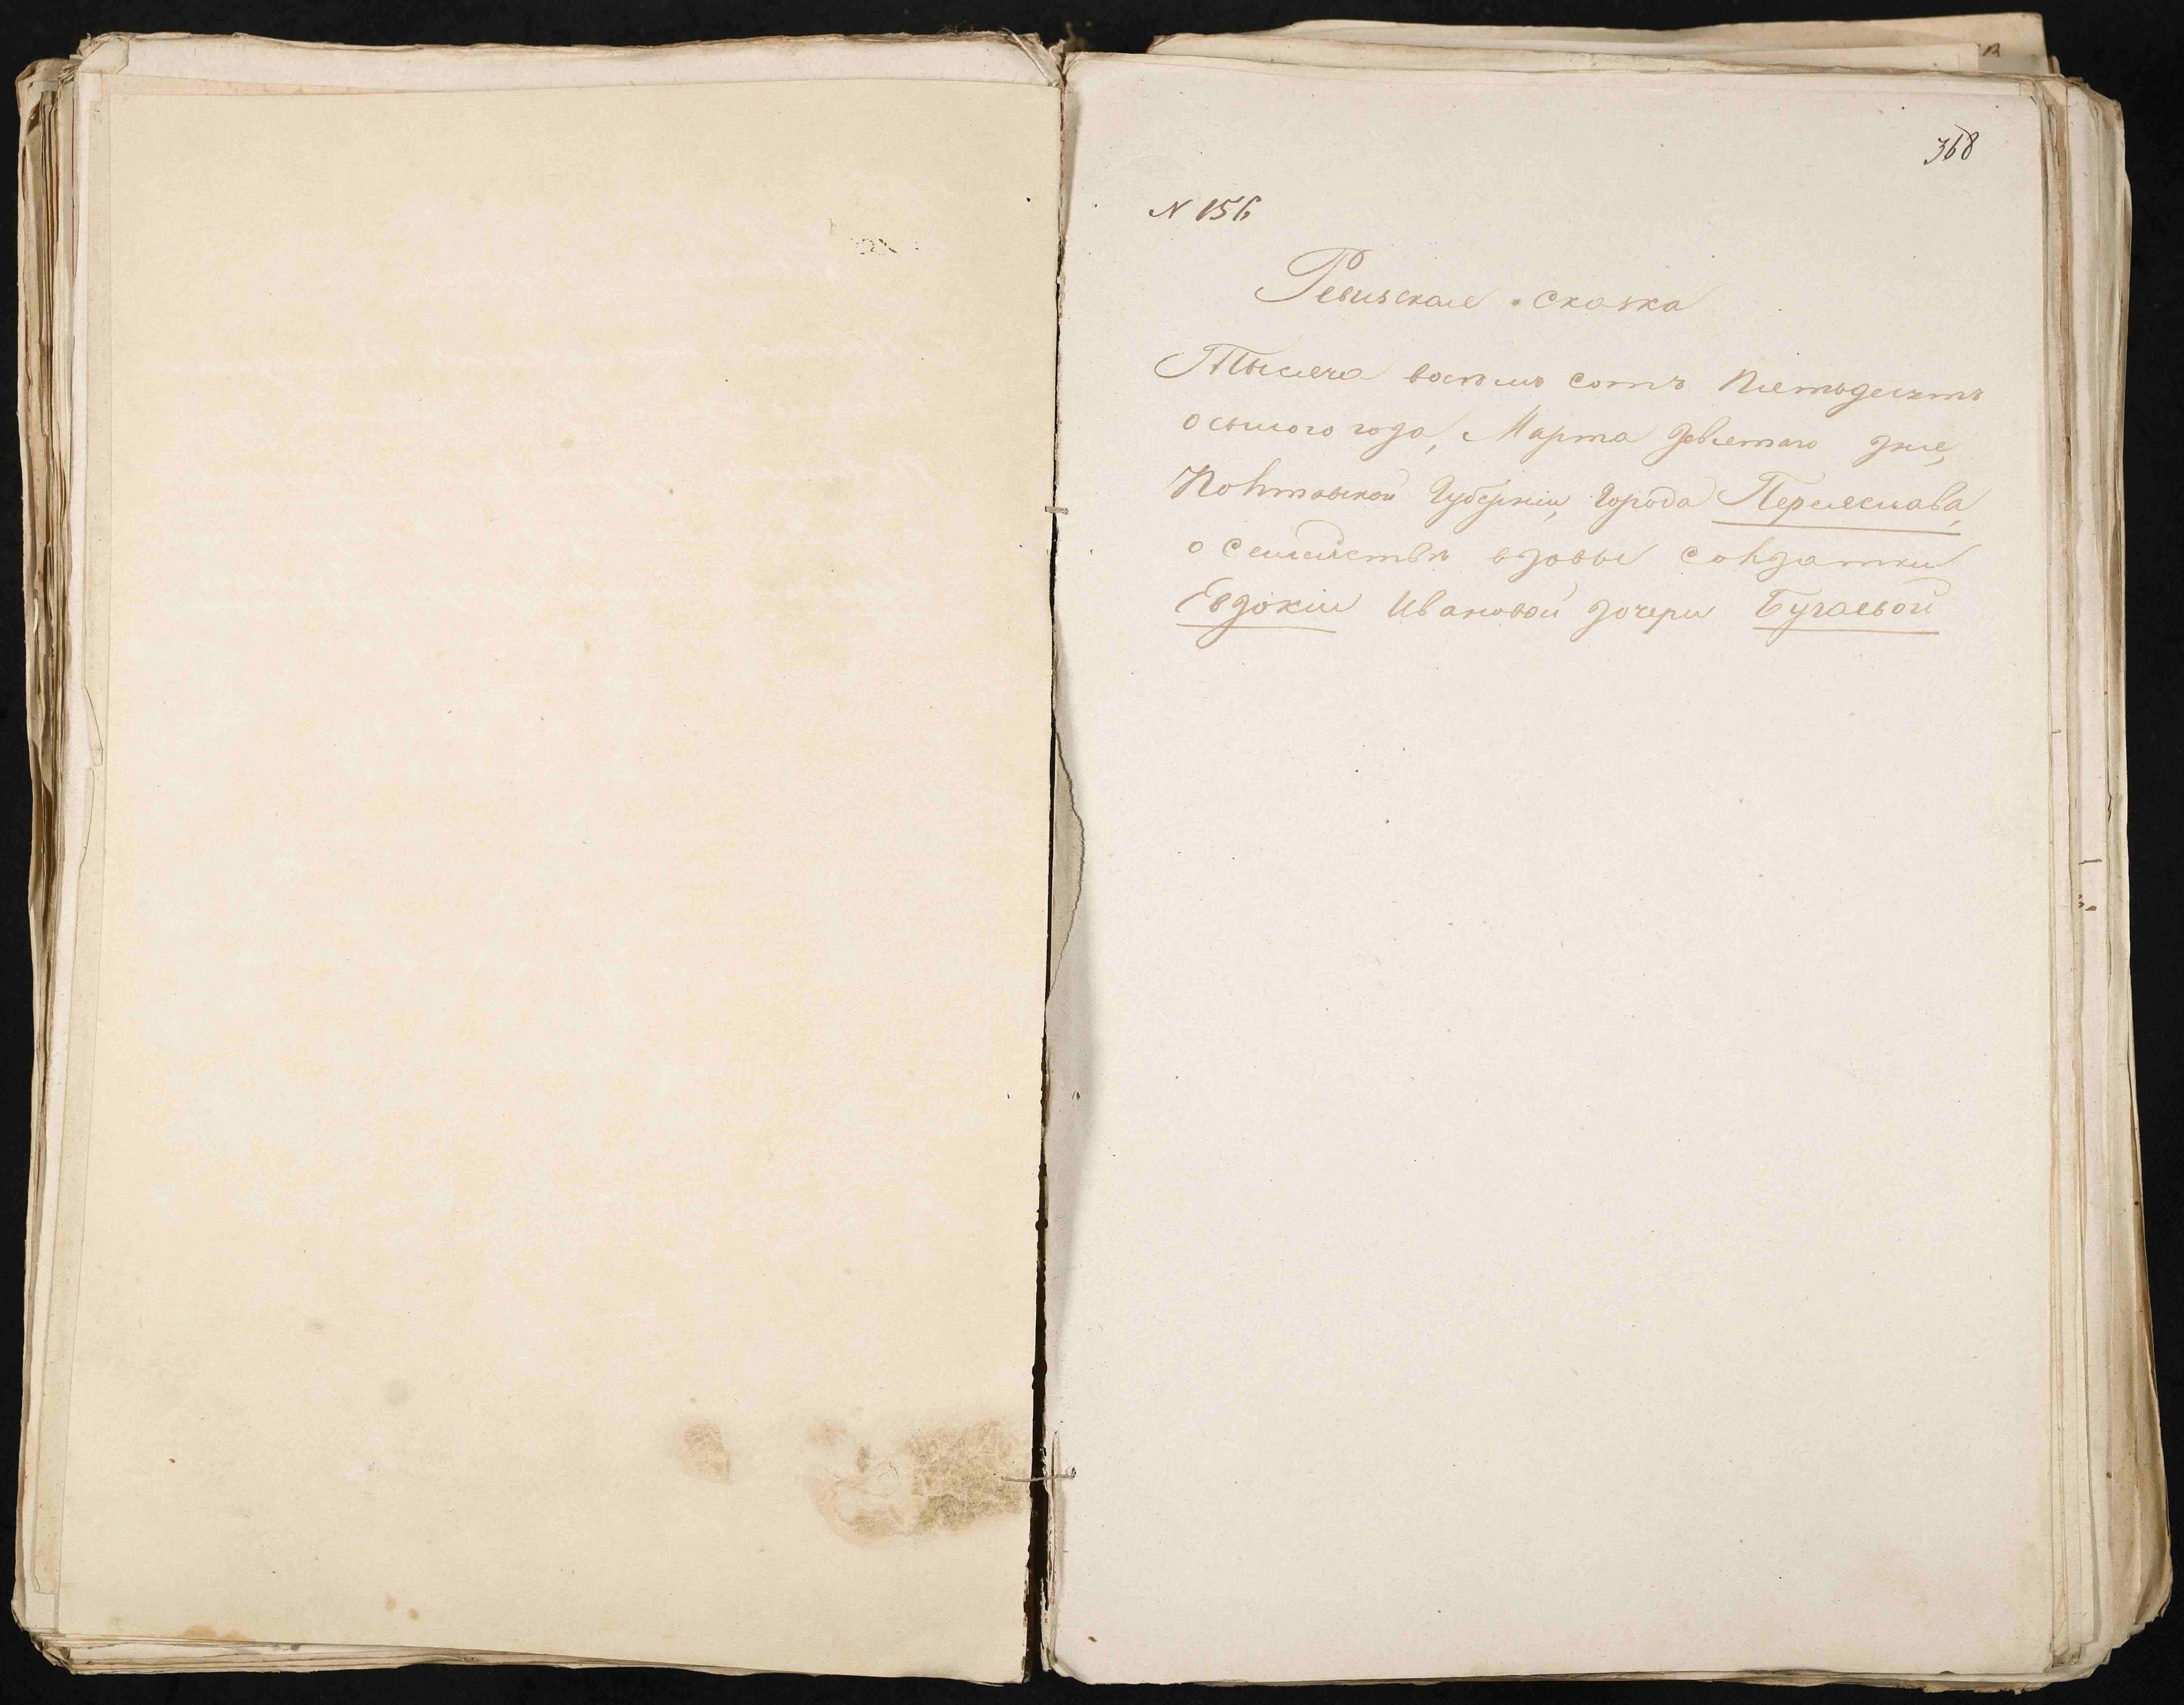 368
N 156
Ревизская сказка
Тысяча восемь сотъ пятьдесятъ
осьмого года, Марта девятаго дня,
Полтавской Губерніи, Города Переяслава,
о семействѣ вдовы солдатки
Евдокіи Ивановой дочери Бугаевой